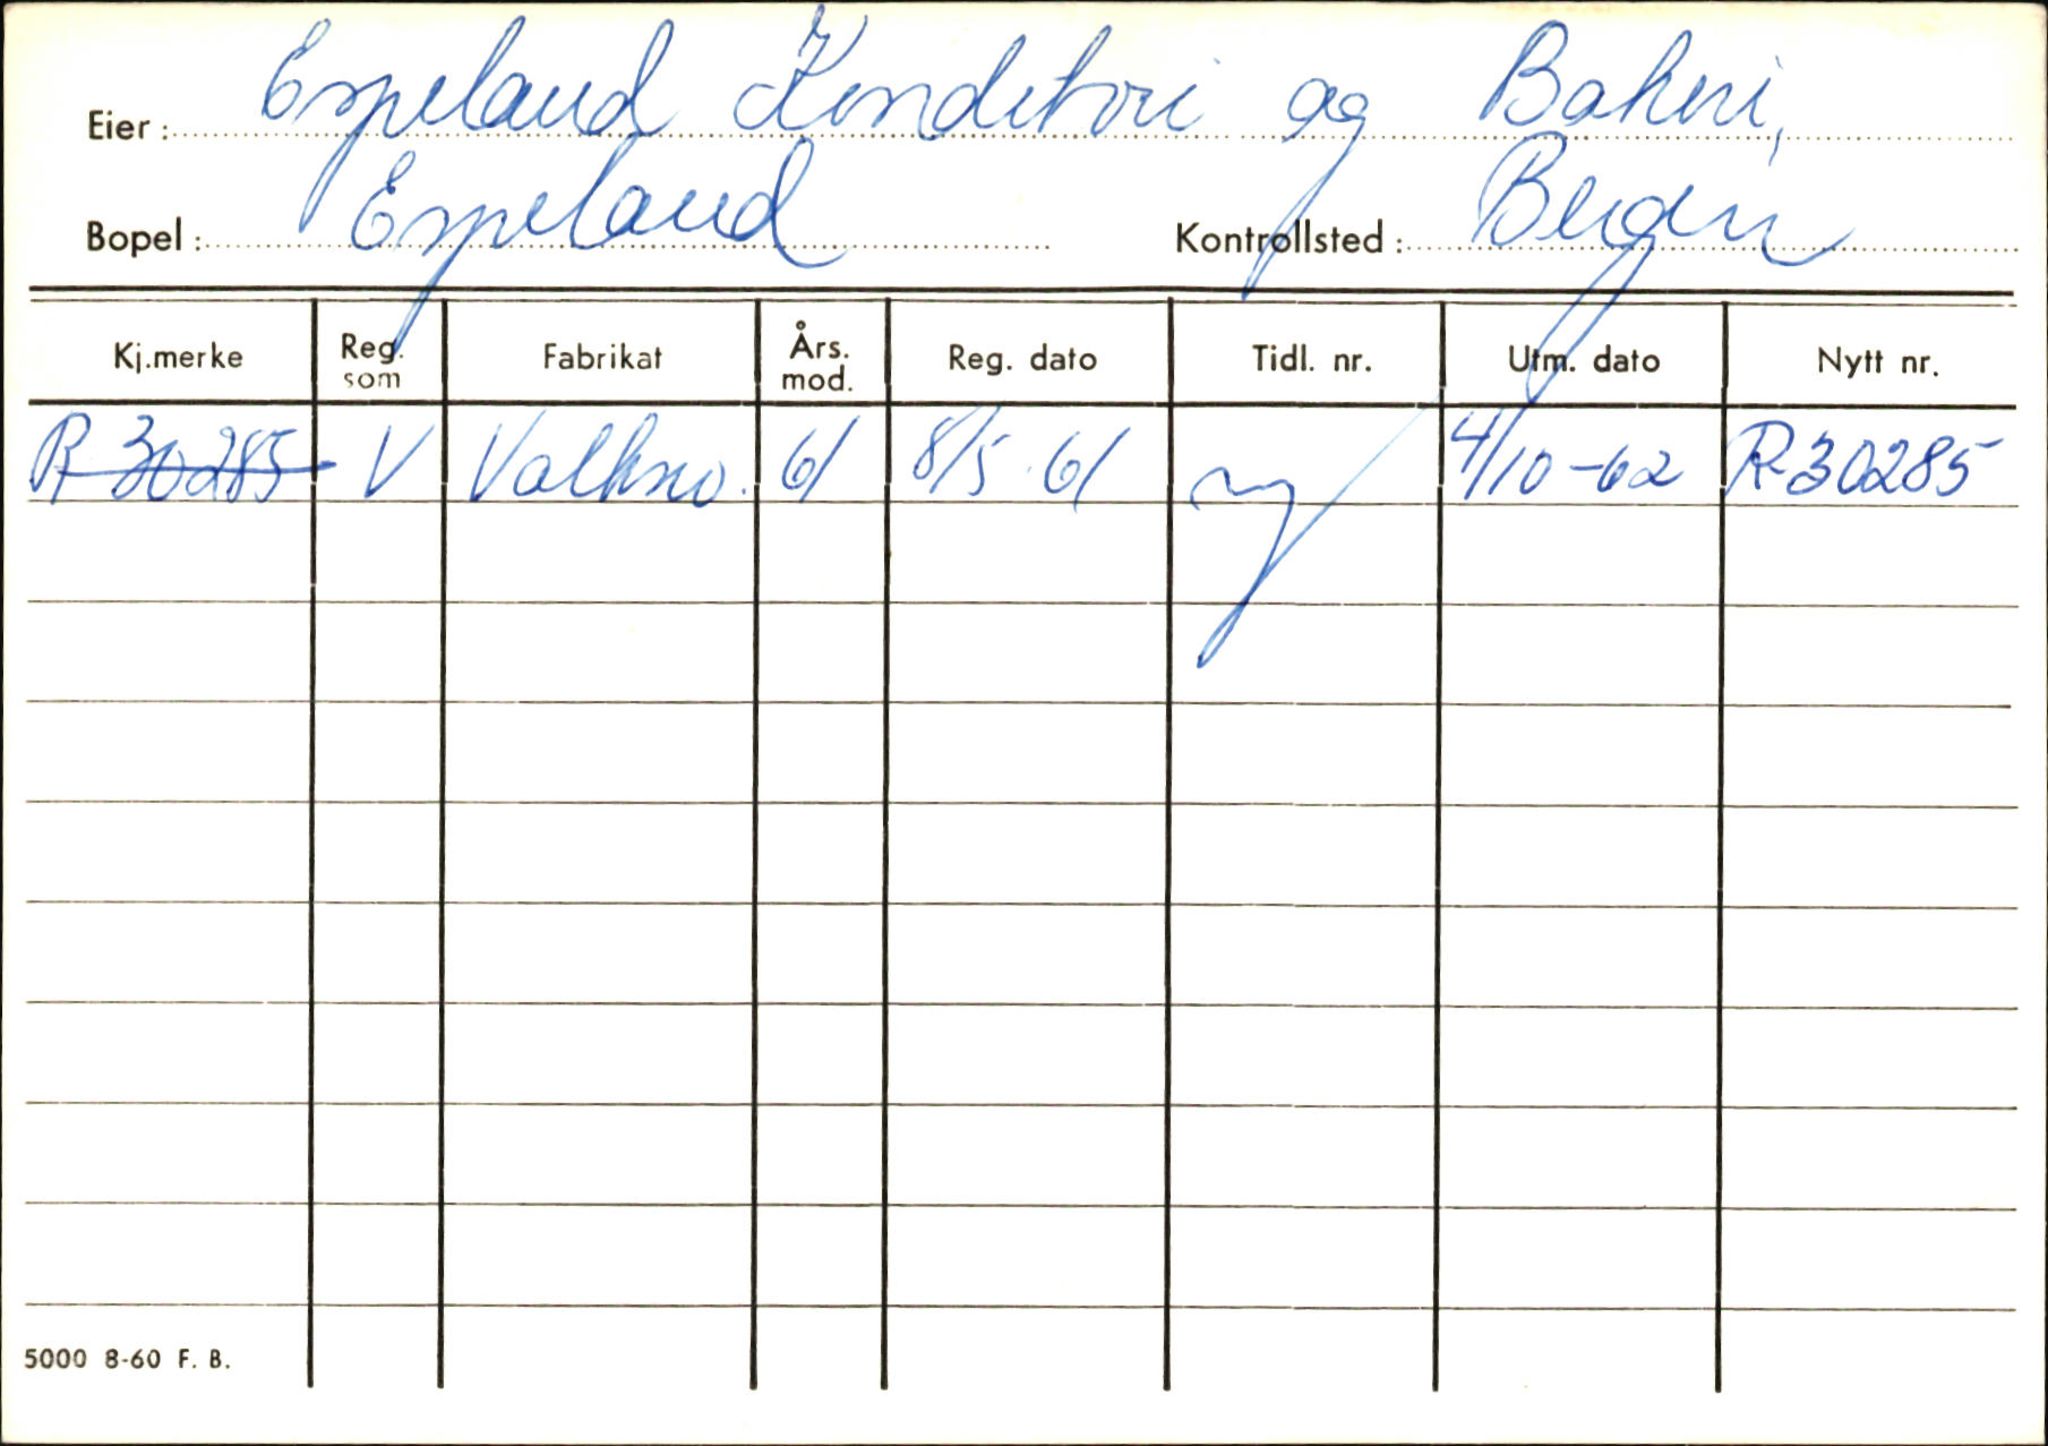 Eier: Espeland Konditori og Bakeri,
Bopel: Espeland Kontrollsted: Bergen
Kj.merke Reg. som Fabrikat Års. mod. Reg. dato Tidl. nr. Utm. dato Nytt nr.
R-30285 V Volksw. 61 8/5-61 ny 4/10-62 R-30285
5000 8-60 F. B.